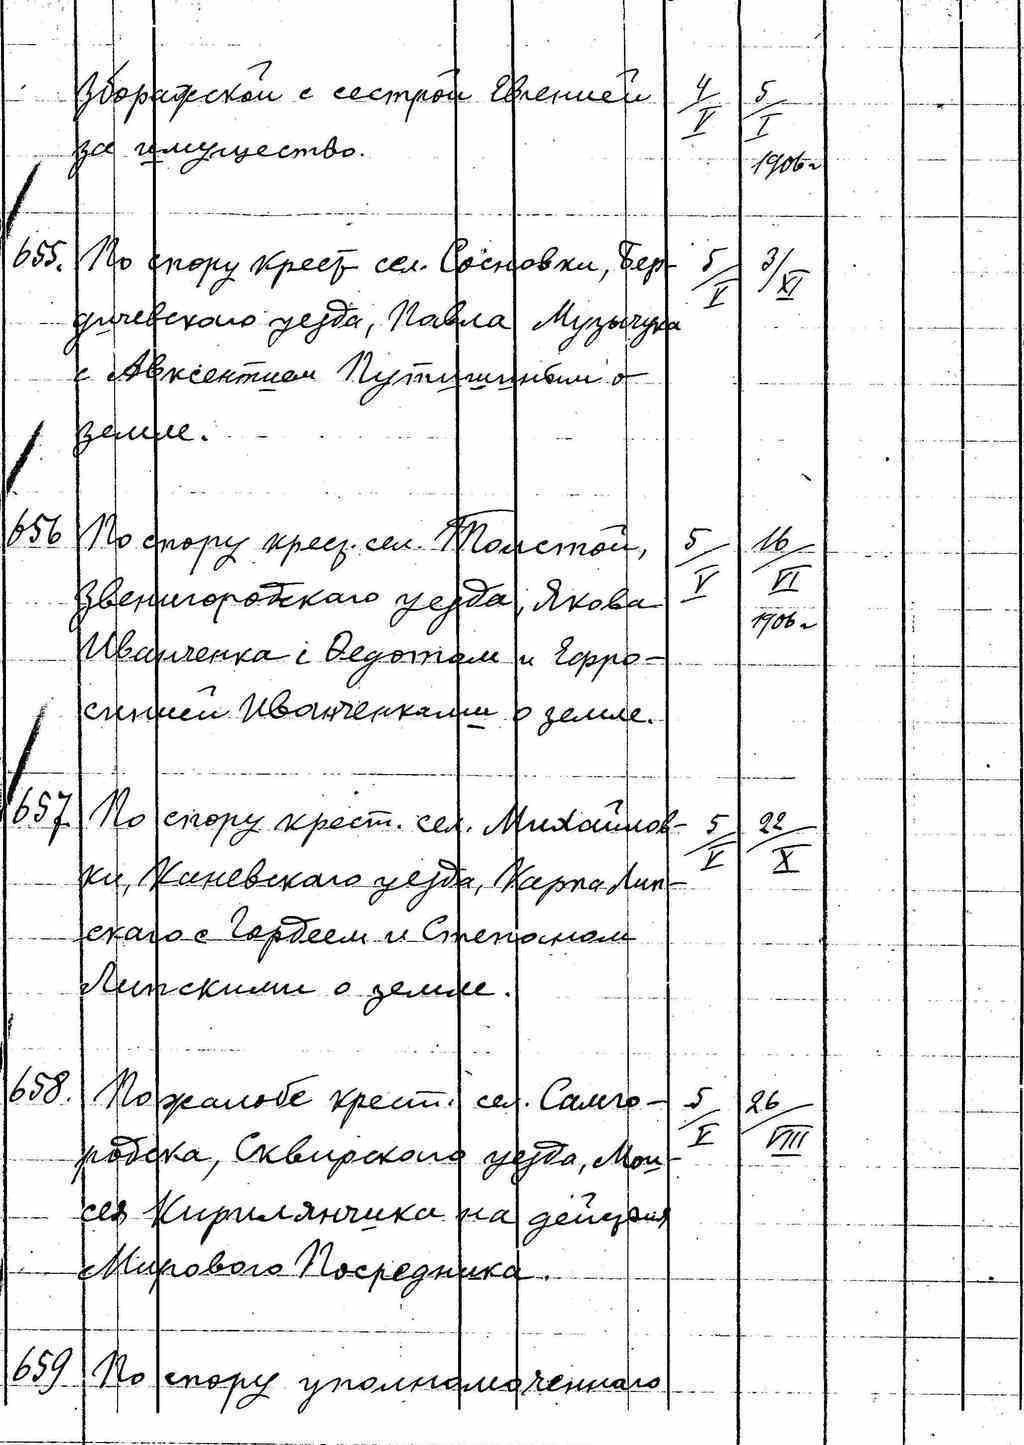 Зборажской с сестрой Евгенией 4/V 5/I
за имущество. 1906 г
655. По спору крест. сел. Сосновки, Бер- 5/V 3/XI
дичевского уезда, Павла Музычука
с Авксентием Путишиным о
земле.
656 По спору крест. сел. Толстой, 5/V 16/VI
Звенигородскаго уезда, Якова 1906 г
Иванченка с Федотом и Ефро-
синией Иванченками о земле.
657 По спору крест. сел. Михайлов- 5/V 22/X
ки, Каневскаго уезда, Карпа Лип-
скаго с Гордеем и Степаном
Липскими о земле.
658. По жалобе крест. сел. Самго- 5/V 26/VIII
родска, Сквирскаго уезда, Мои-
сея Кирилянчика на действия
Мирового Посредника.
659 По спору уполномоченнаго